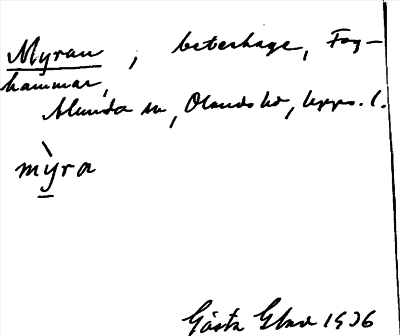 Myran, beteshage, Fog-
hammar,
Alunda sn, Olands hd, Upps. l.
mỳra
Gösta Elmå 1936